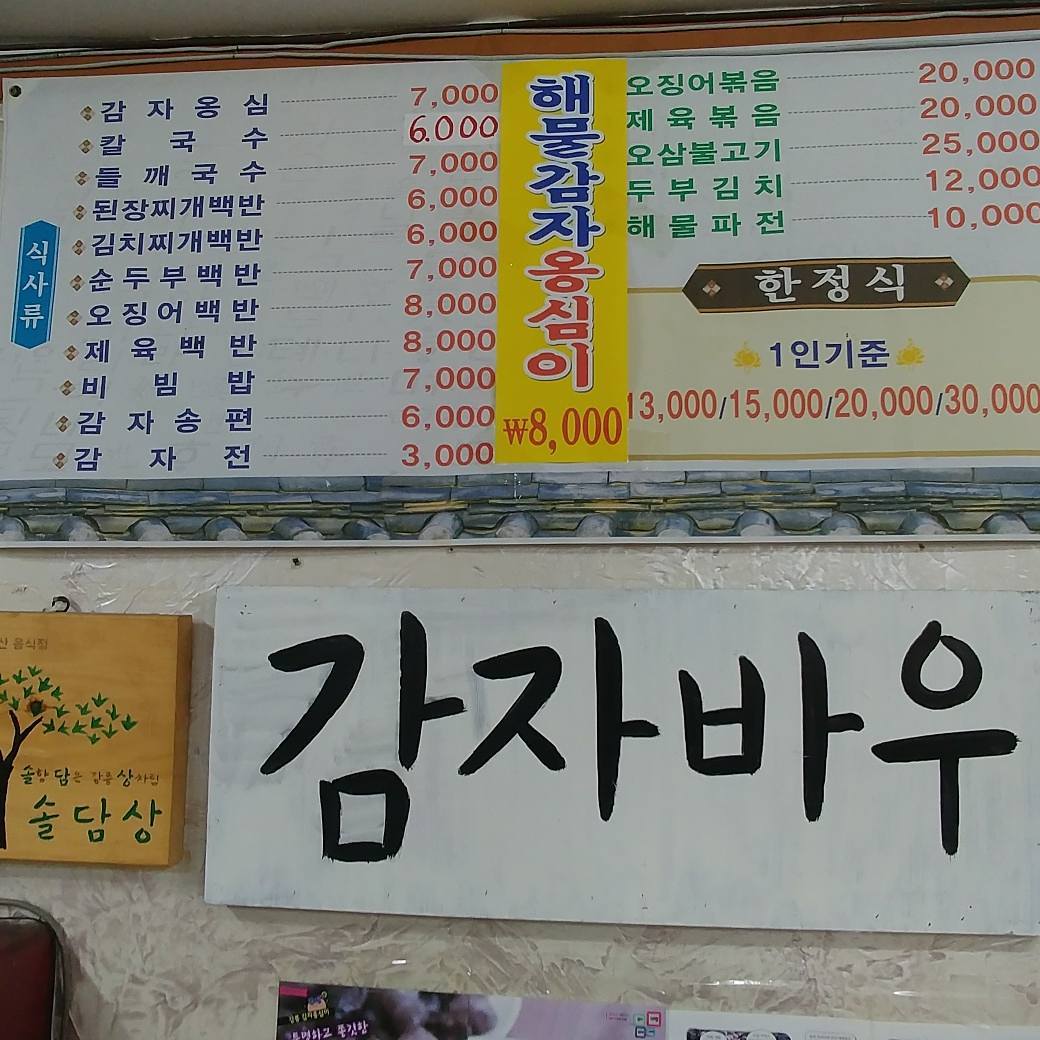 식사류
감자옹심 7,000
칼국수 6.000
들깨국수 7,000
된장찌개백반 6,000
김치찌개백반 6,000
순두부백반 7,000
오징어백반 8,000
제육백반 8,000
비빔밥 7,000
감자송편 6,000
감자전 3,000
해물감자옹심이
₩8,000
오징어볶음 20,000
제육볶음 20,000
오삼불고기 25,000
두부김치 12,000
해물파전 10,000
한정식
1인기준
13,000/15,000/20,000/30,000
감자바우
산 음식점
솔향 담은 강릉 상차림
솔담상
강릉 감자옹심이
투명하고 쫄깃한